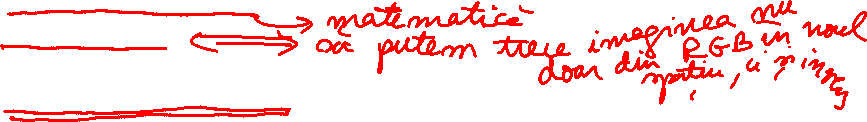 matematică
să putem trece imaginea nu
doar din RGB în noul
spațiu, ci și invers